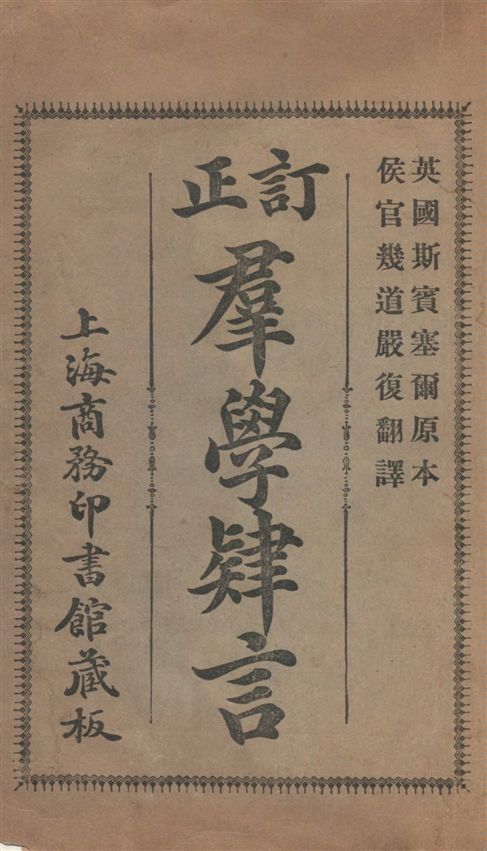 英國斯賓塞爾原本
侯官幾道嚴復翻譯
訂正
羣學肄言
上海商務印書館藏板